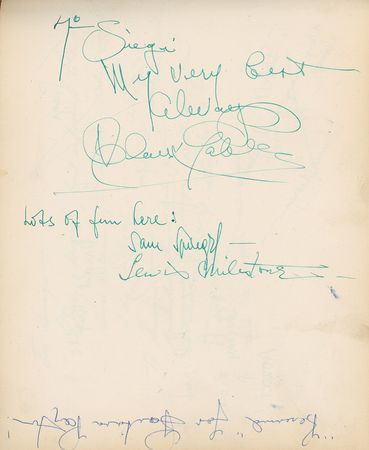 To Siegi
My very best
Always
Clark Gable
Lots of fun here:
Sam Spiegel —
Lewis Milestone —
"Bernard" for Barbara